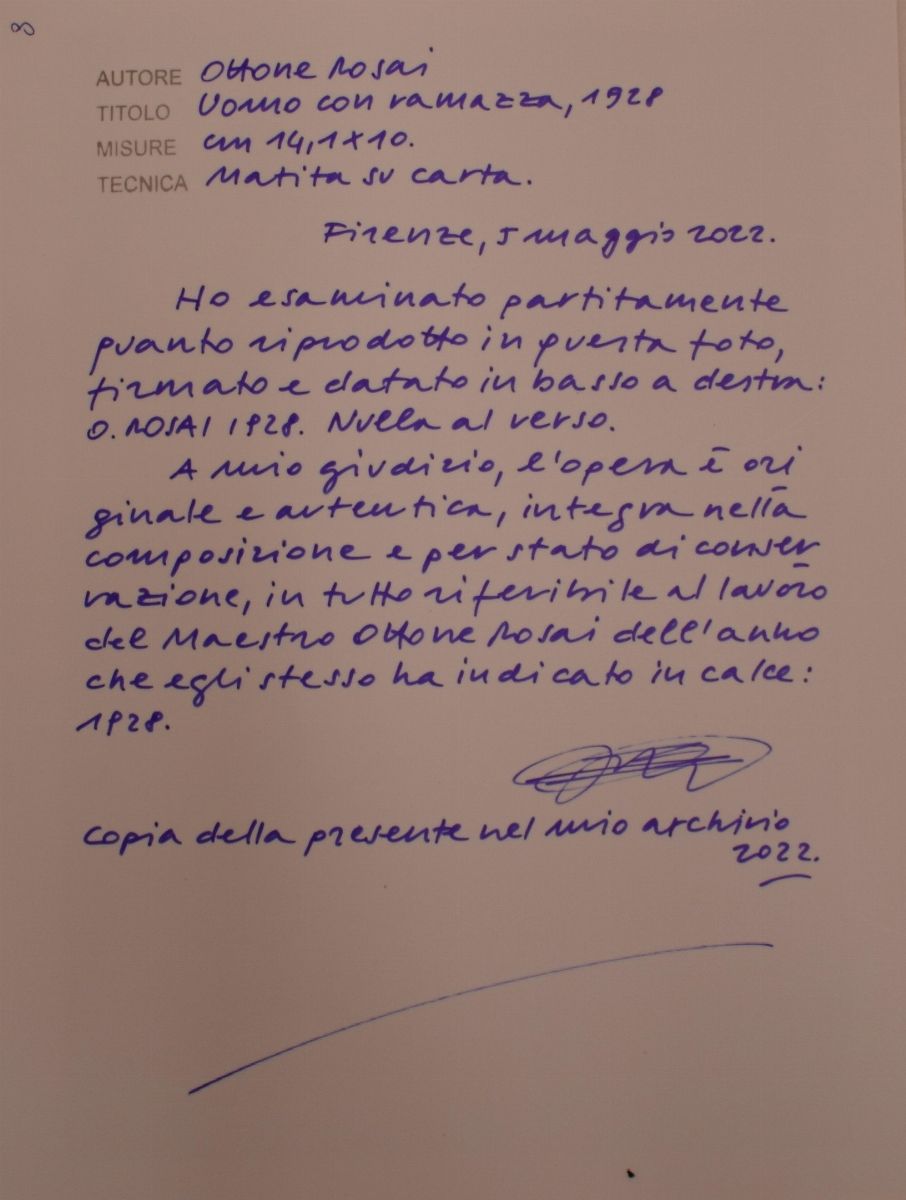 8
AUTORE Ottone Rosai
TITOLO Uomo con ramazza, 1928
MISURE cm 14,1x10.
TECNICA Matita su carta.
Firenze, 5 maggio 2022.
Ho esaminato partitamente
quanto riprodotto in questa foto,
firmato e datato in basso a destra:
O. ROSAI 1928. Nulla al verso.
A mio giudizio, l'opera è ori
ginale e autentica, integra nella
composizione e per stato di conser
vazione, in tutto riferibile al lavoro
del Maestro Ottone Rosai dell'anno
che egli stesso ha indicato in calce:
1928.
Copia della presente nel mio archivio
2022.